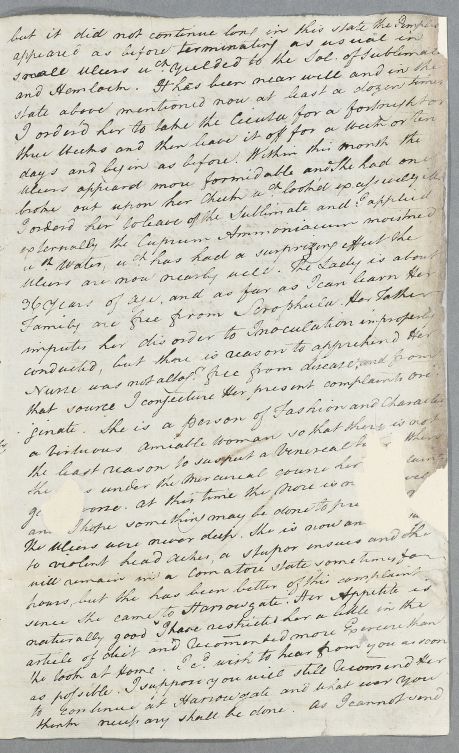 but it did not continue long in this state the Pimples
appeared as before terminating as usual in
small Ulcers wch yielded to the Sol. of Sublimate
and Hemlock. It has been near well and in the
state above mentioned now at least a dozen times
I orderd her to take the Cicuta for a fortnight or
three Weeks and then leave it off for a week or ten
days and begin as before. Within this month the
Ulcers appeard more formidable and she had one
broke out upon her Cheek wch looked excessively ill
I orderd her to leave of the Sublimate and I applied
externally the Cuprum Ammoniacum moistned
wth Water, wch has had a surprizing effect the
Ulcers are now nearly well. The Lady is about
36 years of age, and as far as I can learn Her
Family are free from Scrophula. Her Father
imputes her disorder to Inoculation improperly
conducted, but there is reason to apprehend Her
Nurse was not free from disease, and from
that source I conjecture Her present complaints ori-
ginate. She is a person of Fashion and Character
a virtuous amiable woman so that there is not
the least reason to suspect a Venereal When
She under the Mercurial course her
worse. At this time the Nose is
and I hope something may be done to
the Ulcers were never deep. She is now and
to violent head aches, a stupor ensues and she
will remain in a Comatose state sometimes for
hours, but she has been better of this complaint
since she came to Harrowgate. Her Appetite is
naturally good I have restricted her a little in the
article of diet and recommended more Exercise than
she took at Home. I cd wish to hear from you as soon
as possible. I suppose you will still recommend Her
to continue at Harrowgate and what ever you
think necessary shall be done. As I cannot send